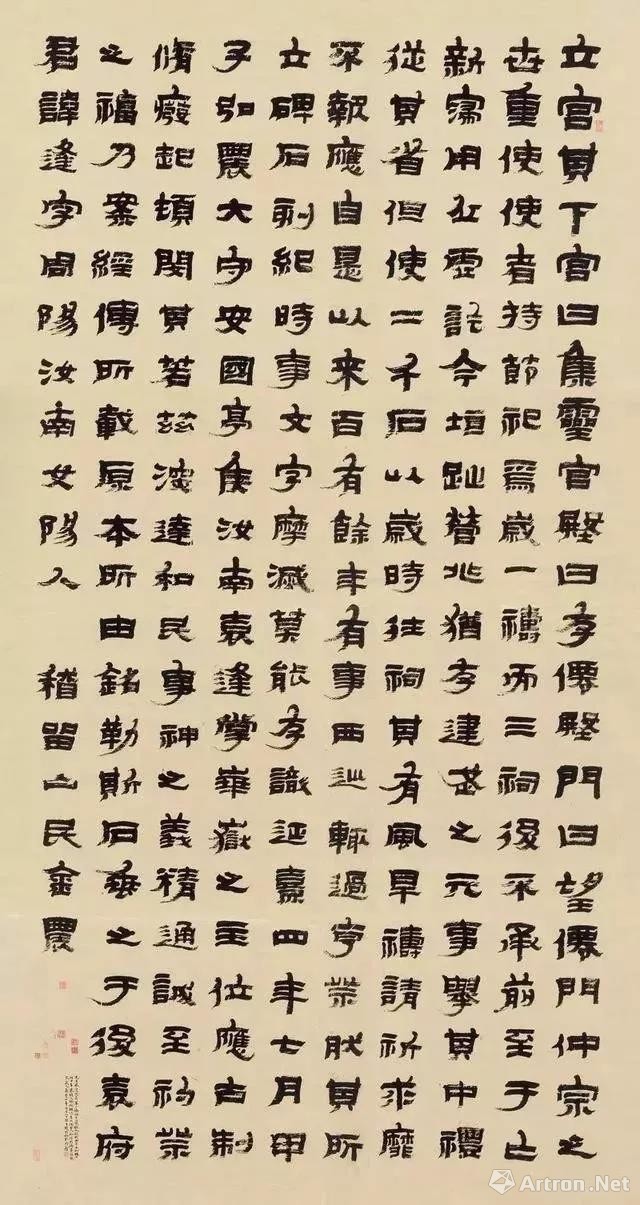 立宮其下宮曰集靈宮壂曰存僊壂門曰望僊門仲宗之
世重使使者持節祀焉歲一禱而三祠後不承前至于亡
新寖用丘虛訖今垣趾營兆猶存建武之元事舉其中禮
從其省但使二千石以歲時往祠其有風旱禱請祈求靡
不報應自是以來百有餘年有事西巡輒過亨祭然其所
立碑石刻紀時事文字摩滅莫能存識延熹四年七月甲
子弘農大守安國亭侯汝南袁逢掌華嶽之主位應古制
脩廢起頓閔其若茲深達和民事神之義精通誠至礿祭
之福乃案經傳所載原本所由銘勒斯石垂之于後袁府
君諱逢字周陽汝南女陽人 稽留山民金農
Artron.Net